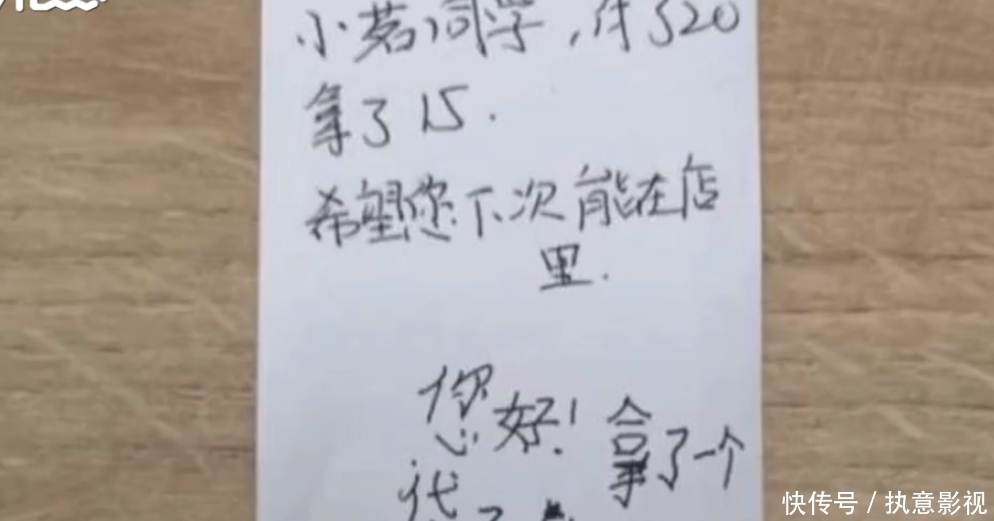 小茗同学,付了20
拿了15.
希望您下次能在店
里.
您好!拿了一个
代
快传号 / 执意影视